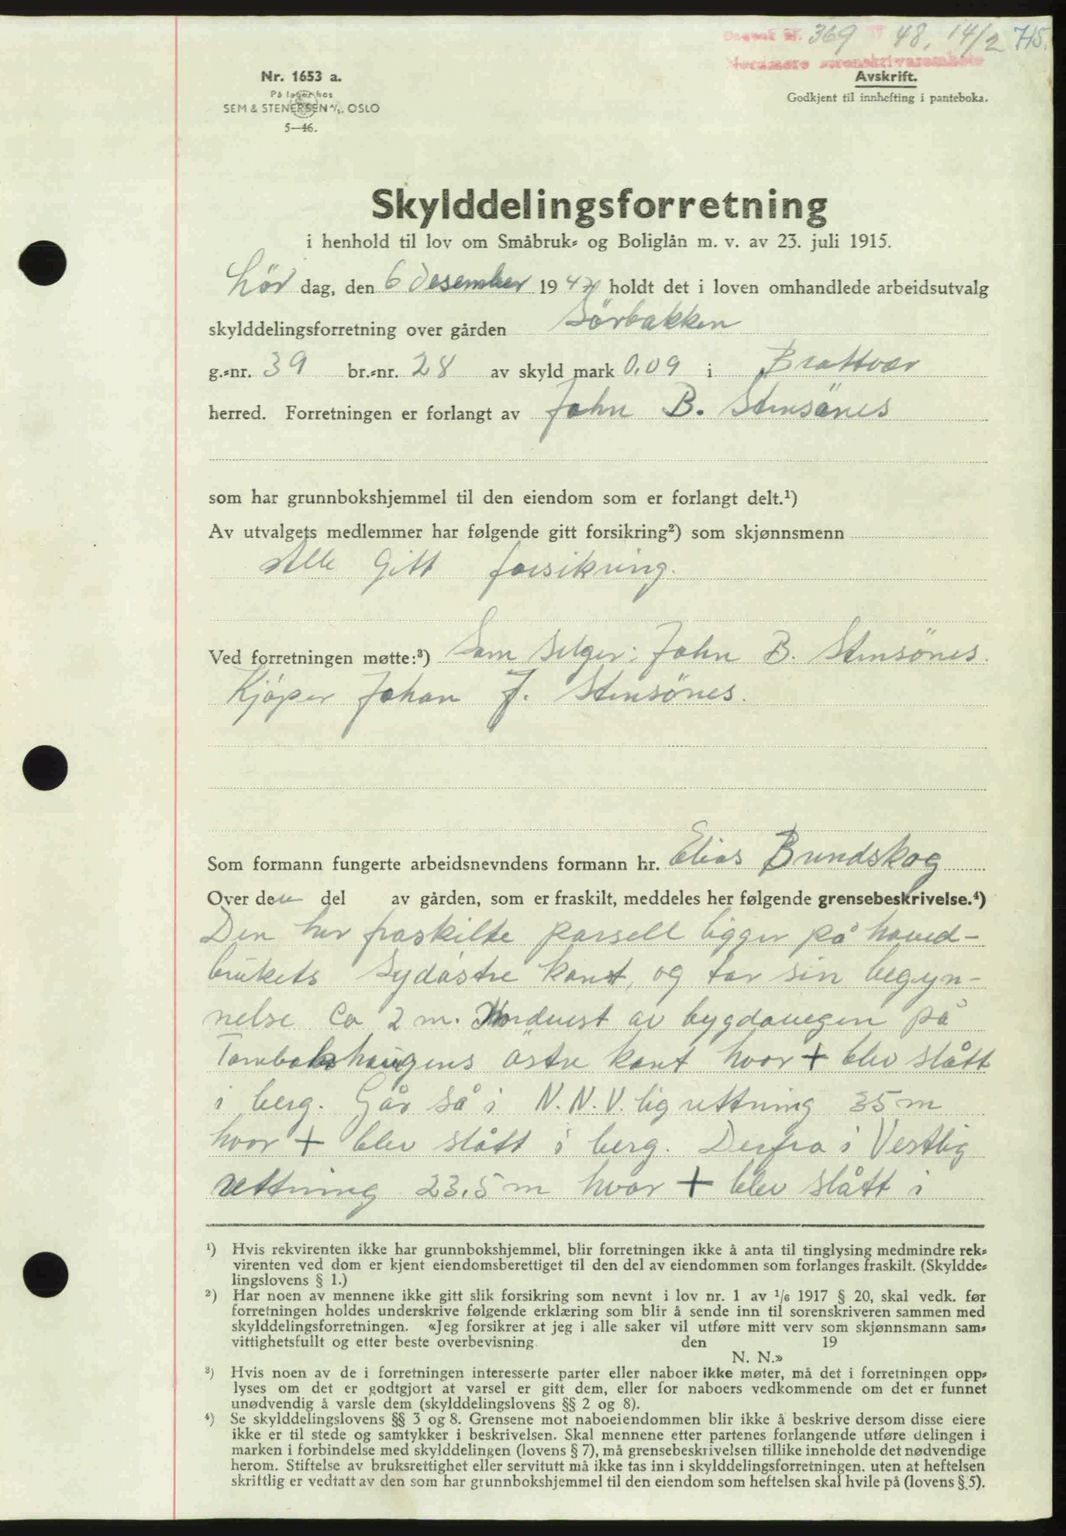 Dagbok nr. 369 48, 14/2 715.
Nordmøre sorenskriverembete
Nr. 1653 a.
På lager hos
SEM & STENERSEN A/S, OSLO
5—46.
Avskrift.
Godkjent til innhefting i panteboka.
Skylddelingsforretning
i henhold til lov om Småbruk- og Boliglån m. v. av 23. juli 1915.
Lör dag, den 6 Desember 1947 holdt det i loven omhandlede arbeidsutvalg
skylddelingsforretning over gården Sörbakken
g.-nr. 39 br.-nr. 28 av skyld mark 0,09 i Brattvær
herred. Forretningen er forlangt av John B. Stensönes
som har grunnbokshjemmel til den eiendom som er forlangt delt.¹)
Av utvalgets medlemmer har følgende gitt forsikring²) som skjønnsmenn
Alle gitt forsikring.
Ved forretningen møtte:³) Som selger: John B. Stensönes.
Kjöper Johan J. Stensönes.
Som formann fungerte arbeidsnevndens formann hr. Elias Brundskog
Over den del av gården, som er fraskilt, meddeles her følgende grensebeskrivelse.⁴)
Den her fraskilte parsell ligger på hoved-
brukets Sydöstre kant, og tar sin begyn-
nelse Ca 2 m. Nordvest av bygdavegen på
östre kant hvor + blev slått
i berg. Går så i N.N.V. lig rettning 35 m
hvor + blev slått i berg. Derfra i Vestlig
rettning 23,5 m hvor + blev slått i
¹) Hvis rekvirenten ikke har grunnbokshjemmel, blir forretningen ikke å anta til tinglysing medmindre rek-
virenten ved dom er kjent eiendomsberettiget til den del av eiendommen som forlanges fraskilt. (Skyldde-
lingslovens § 1.)
²) Har noen av mennene ikke gitt slik forsikring som nevnt i lov nr. 1 av 1/6 1917 § 20, skal vedk. før
forretningen holdes underskrive følgende erklæring som blir å sende inn til sorenskriveren sammen med
skylddelingsforretningen. «Jeg forsikrer at jeg i alle saker vil utføre mitt verv som skjønnsmann sam-
vittighetsfullt og etter beste overbevisning. den 19
N. N.»
³) Hvis noen av de i forretningen interesserte parter eller naboer ikke møter, må det i forretningen opp-
lyses om det er godtgjort at varsel er gitt dem, eller for naboers vedkommende om det er funnet
unødvendig å varsle dem (skylddelingslovens §§ 2 og 8).
⁴) Se skylddelingslovens §§ 3 og 8. Grensene mot naboeiendommen blir ikke å beskrive dersom disse eiere
ikke er til stede og samtykker i beskrivelsen. Skal mennene etter partenes forlangende utføre delingen i
marken i forbindelse med skylddelingen (lovens § 7), må grensebeskrivelsen tillike inneholde det nødvendige
herom. Stiftelse av bruksrettighet eller servitutt må ikke tas inn i skylddelingsforretningen, uten at heftelsen
skriftlig er vedtatt av den som har grunnbokshjemmel til den eiendom som heftelsen skal hvile på (lovens § 5).